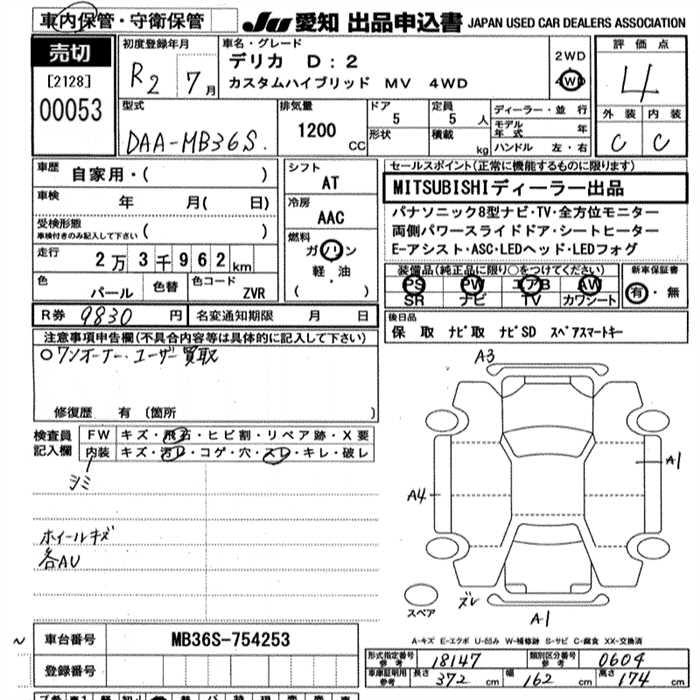 車内保管・守衛保管
JU 愛知 出品申込書 JAPAN USED CAR DEALERS ASSOCIATION
売切
[2128]
00053
初度登録年月
R2 7月
車名・グレード
デリカ D:2
カスタムハイブリッド MV 4WD
2WD
4WD
評価点
4
外装 内装
C C
型式
DAA-MB36S
排気量
1200 CC
ドア
5
形状
定員
5人
積載
kg
ディーラー・並行
モデル年式 年
ハンドル 左・右
車歴
自家用・( )
車検
年 月( 日)
受検形態
車検付きのみ記入して下さい
( )
走行
2万3千962km
色
パール
色替
色コード
ZVR
シフト
AT
冷房
AAC
燃料
ガソリン
軽・油
( )
セールスポイント(正常に機能するものに限ります)
MITSUBISHIディーラー出品
パナソニック8型ナビ・TV・全方位モニター
両側パワースライドドア・シートヒーター
E-アシスト・ASC・LEDヘッド・LEDフォグ
装備品(純正品に限り○をつけてください)
PS PW エアB AW
SR ナビ TV カワシート
新車保証書
有・無
R券 9830円 名変通知期限 月 日
後日品
保 取 ナビ取 ナビSD スペアスマートキー
注意事項申告欄(不具合内容等は具体的に記入して下さい)
○ワンオーナー、ユーザー買取
修復歴 有 (箇所 )
検査員記入欄
FW キズ・飛石・ヒビ割・リペア跡・X要
内装 キズ・汚レ・コゲ・穴・スレ・キレ・破レ
シミ
ホイールキズ
各AU
A3
A1
A4
スペア
ズレ
A1
A-キズ E-エクボ U-凹み W-補修跡 S-サビ C-腐食 XX-交換済
~ 車台番号 MB36S-754253
登録番号
形式指定番号 参考 18147 類別区分番号 参考 0604
車庫証明用 参考 長さ 372 cm 幅 162 cm 高さ 174 cm